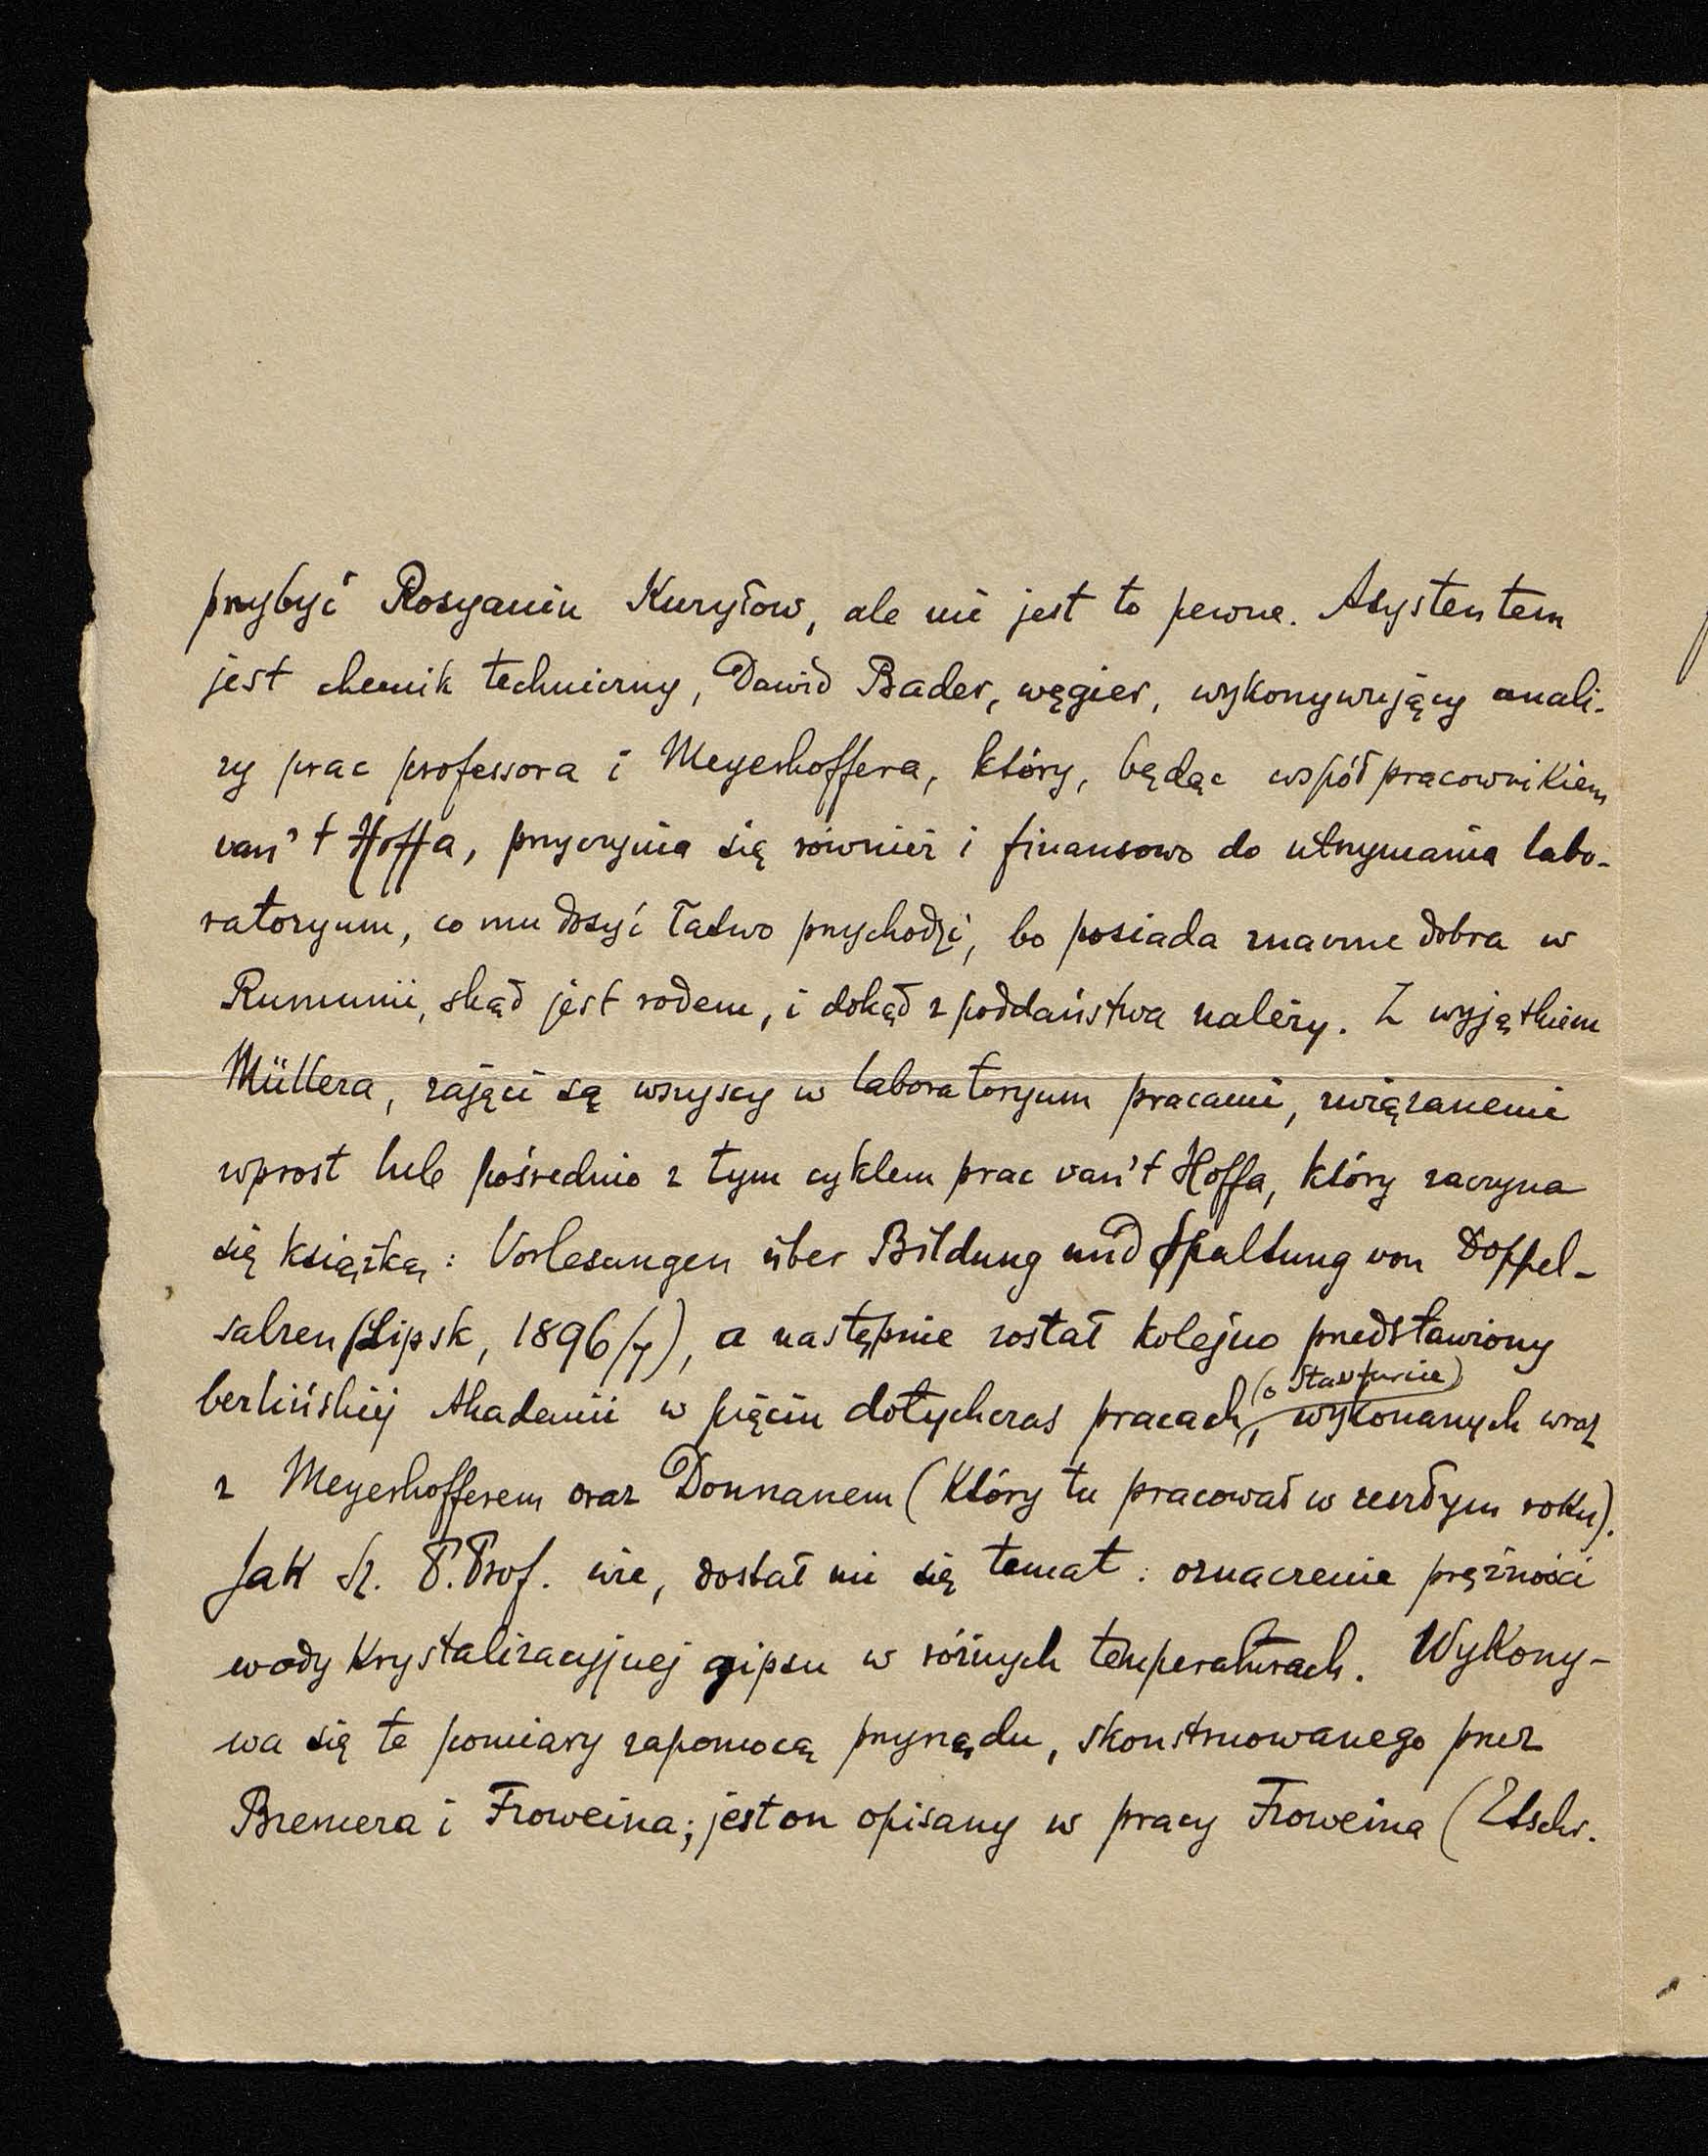 przybyć Rosyanin Kuryłow, ale nie jest to pewne. Asystentem
jest chemik techniczny, Dawid Bader, węgier, wykonywujący anali-
zy prac professora i Meyerhoffera, który, będąc współpracownikiem
van't Hoffa, przyczynia się również i finansowo do utrzymania labo-
ratoryum, co mu dosyć łatwo przychodzi, bo posiada znaczne dobra w
Rumunii, skąd jest rodem, i dokąd z poddaństwa należy. Z wyjątkiem
Müllera, zajęci są wszyscy w laboratoryum pracami, związanemi
wprost lub pośrednio z tym cyklem prac van't Hoffa, który zaczyna
się książką: Vorlesungen über Bildung und Spaltung von Doppel-
salzen (Lipsk, 1896/7), a następnie został kolejno przedstawiony
(o Stassfurcie)
berlińskiej Akademii w pięciu dotychczas pracach, wykonanych wraz
z Meyerhofferem oraz Donnanem (który tu pracował w zeszłym roku).
Jak Sz. P. Prof. wie, dostał mi się temat: oznaczenie prężności
wody krystalizacyjnej gipsu w różnych temperaturach. Wykony-
wa się te pomiary zapomocą przyrządu, skonstruowanego przez
Bremera i Froweina; jest on opisany w pracy Froweina (Ztschr.